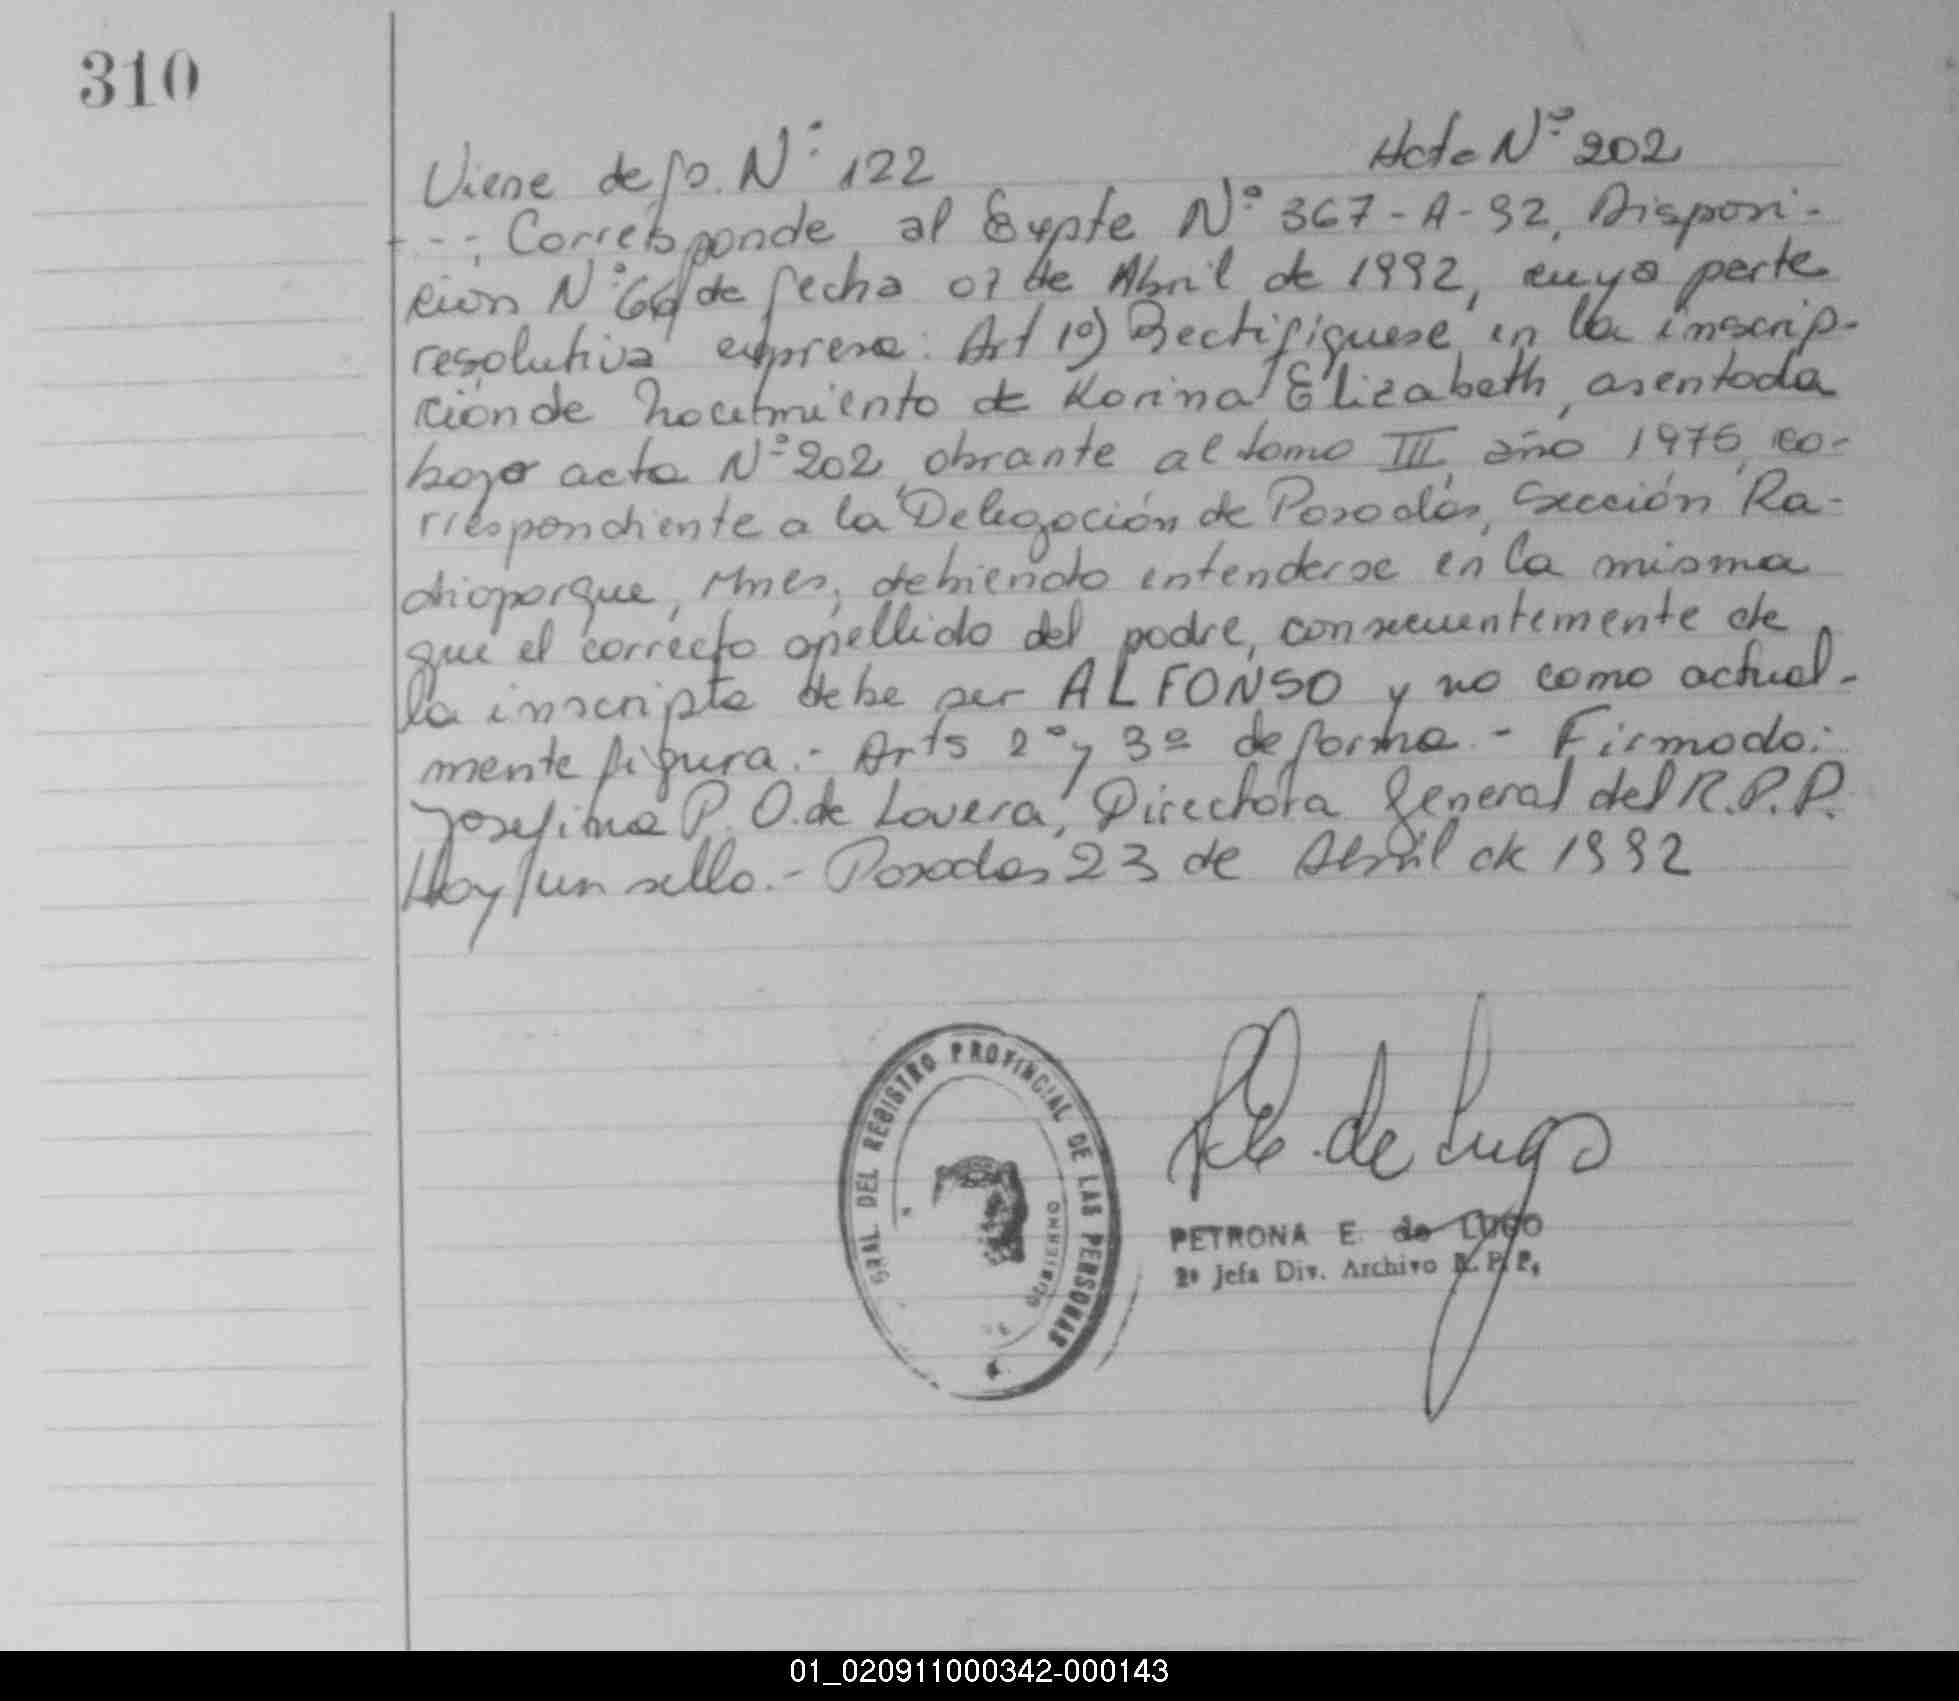 310
Viene de fo. Nº 122
Acta Nº 202
---; Corresponde al Expte Nº 367-A-92, Disposi-
cion Nº de fecha 07 de Abril de 1992, cuya parte
resolutiva expresa: Art 1º) Rectifiquese en la inscrip-
ción de nacimiento de Korina Elizabeth, asentada
bajo acta Nº 202, obrante al tomo III, año 1976, co-
rrespondiente a la Delegación de Posadas, Sección Ra-
dioparque, Mnes, debiendo entenderse en la misma
que el correcto apellido del padre, consecuentemente de
la inscripta debe ser ALFONSO y no como actual-
mente figura.- Arts 2º y 3º de forma.- Firmado:
Josefina P. O. de Lovera, Directora General del R.P.P.
Hay un sello.- Posadas 23 de Abril de 1992
GRAL DEL REGISTRO PROVINCIAL DE LAS PERSONAS
GOBIERNO
de Lugo
PETRONA E. de LUGO
2º Jefa Div. Archivo R.P.P.
01_020911000342-000143